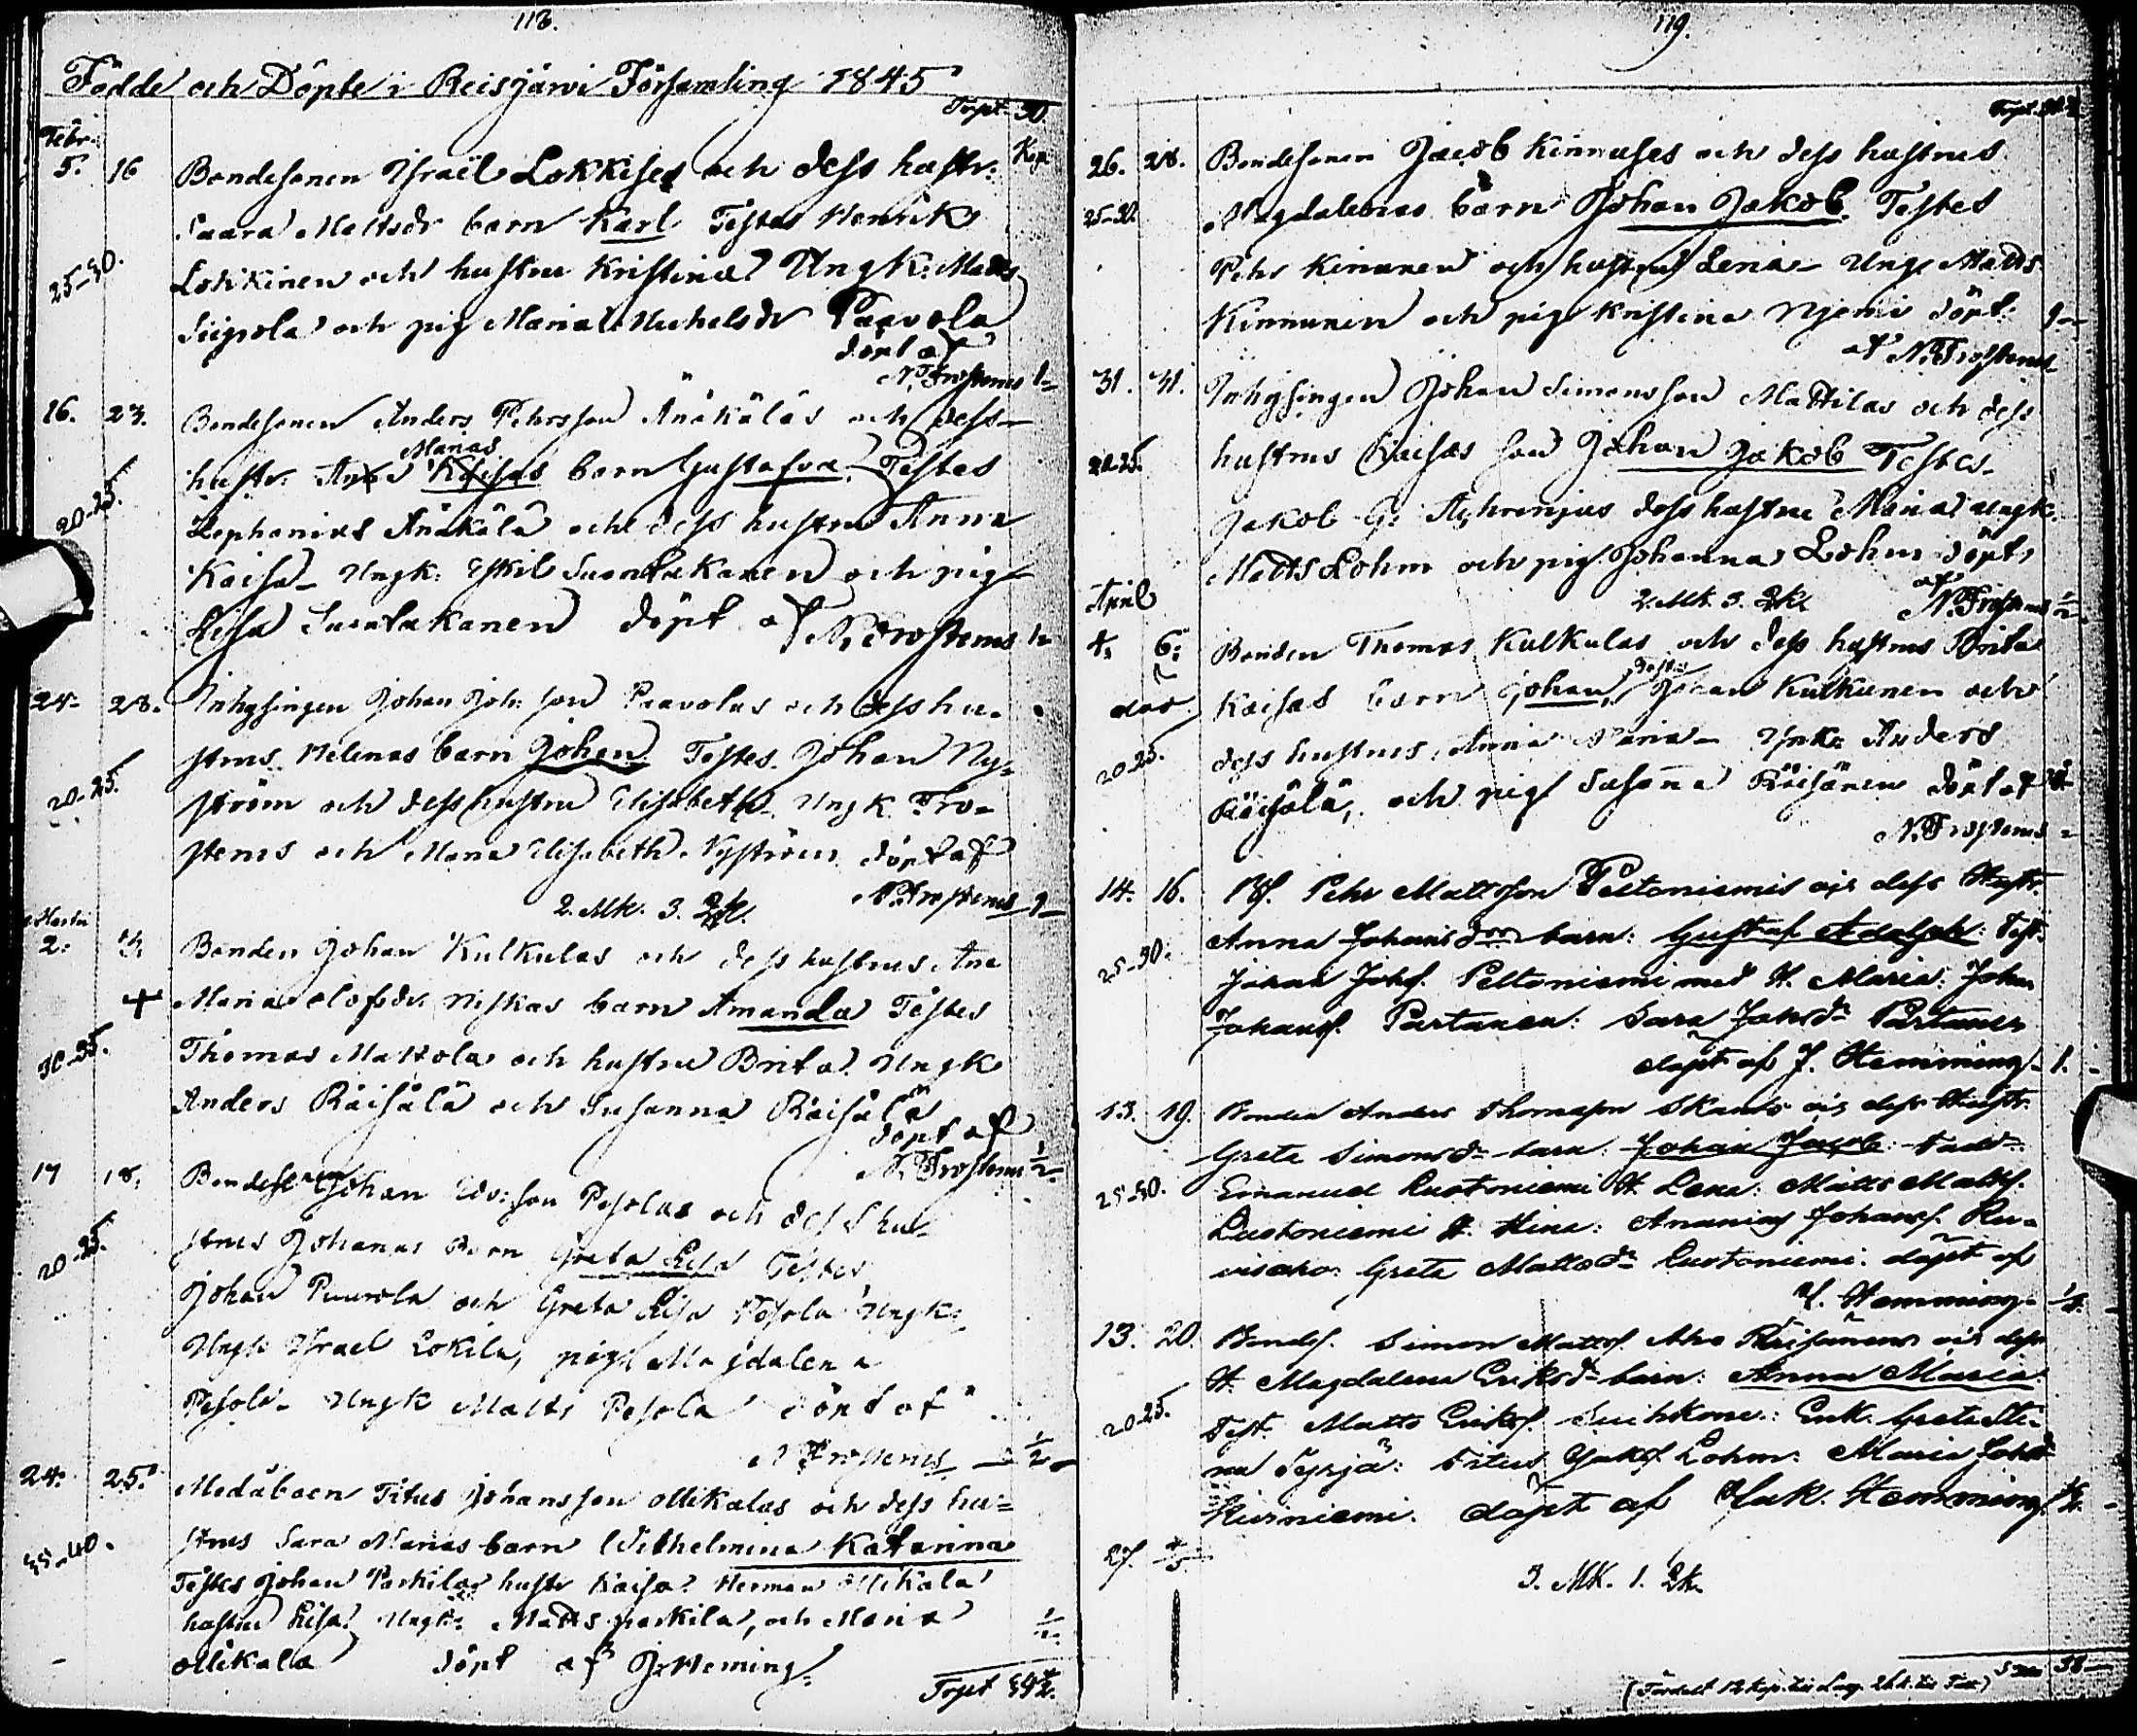 118.
Födde och Döpte i Reisjärvi Församling 1845
Trpt 30.
Febr: Kop:
5. 16 Bondesonen Israël Lokkises och dess hustr:
Saara Mattsdr barn Karl Testes Henrik
25-30. Lokkinen och hustru Kristina Ungk: Matts
och pig Maria Michelsdr Paavola
döpt af
N. Frosterus 1-
16. 23. Bondesonen Anders Pehrsson Änäkäläs och dess
Marias
hustr. barn Gustafva. Testes
20-25. Zephanias Änäkälä och dess hustru Anna
Kaisa - Ungk: Eskil Suontakanen och pig
Lisa Suontakanen döpt af N. Frosterus
24- 28. Inhysingen Johan Joh: son Paavolas och dess hu-
strus Helenas barn Johan. Testes. Johan Ny-
20-25. ström och dess hustru Elisabeth. Ungk. Fro-
sterus och Maria Elisabeth Nyström döpt af
2. Mk. 3. Qk. N. Frosterus 1-
Martii
2. Bonden Johan Kulkulas och dess hustrus Ana
+ Maria Olofsdr. Niskas barn Amanda Testes
30-35. Thomas Mattola och hustru Brita. Ungk
Anders Räisälä och Susanna Räisälä
döpt af
N. Frosterus ½-
17 18. Bondesonen Johan Eds: son Pesolas och dess hu-
strus Johanas Barn Greta Lisa Testes
20-25. Johan Puurola och Greta Lisa Pesola Ungk:
Ungk Israel Lokila, pig Magdalena
Pesola - Ungk Matts Pesola döpt af
N Frosterus ½-
24. 25. Titus Johansson Ollikalas och dess hu=
strus Sara Marias barn Vilhelmina Katarina
35-40. Testes Johan Parkilas hustr Kaisa. Herman Ollikala
hustru Lisa. Ungk: Matts parkila, och Maria ½-
Ollikala döpt af J. Heming.
Trpt
119.
26. 28. Bondesonen Jacob Kinnuses och dess hustrus
25-30. Magdalenas barn Johan Jakob. Testes
Pehr Kinnunen och hustru Lena - Unge Matts
Kinnunen och pig Kristina Njemi döpt: 1-
af N. Frosterus
31. 31. Inhysingen Johan Simonsson Mattilas och dess
20-25. hustrus Kaisas son Johan Jakob Testes-
Jakob G: dess hustru Maria ungk.
Matts Lohm och pig Johanna Lohm döpt
April 2. Mk. 3. Qk. af N. Frosterus ½-
4. 6. Bonden Thomas Kulkulas och dess hustrus Brita
Test:
Kaisas barn Johan, Johan Kulkunen och
20-25. dess hustrus, Anna Maria - Ynk: Anders
Räisälä, och pig Sasana Räisänen döpt af
N. Frosterus
14. 16. Pehr Mattsson Peltoniemis och dess Hustr.
25-30. Anna Johansdrs barn: Gustaf Adolph: Test:
Johan Johs. Peltoniemi med H. Maria: Johan
Johanss. Partanen: Sara Johsdr Partanen
döpt af J. Hemming. 1. -
13. 19. Bonden Anders Thomasson Skants och dess Hustr.
Greta Simonsdr barn: Johan Jacob:
25-30. Emanuel Lustoniemi H. Lena: Matts Matts.
Lustoniemi H. Stina: Ananias Johanss. Ru-
visaho: Greta Mattsdr Lustoniemi: döpt af
J. Hemming.
13. 20. Bonds. Simon Matts. Aho Räisänens och dess
H. Magdalena Eriksdr barn: Anna Maria.
20-25. Test. Matts Eriks. Enk. Greta Sti-
na Syrjä: Titus Jaks. Lohm: Maria
Hirviniemi. döpt af Jak. Hemming. ½. -
27.
3. Mk. 1. Qk.